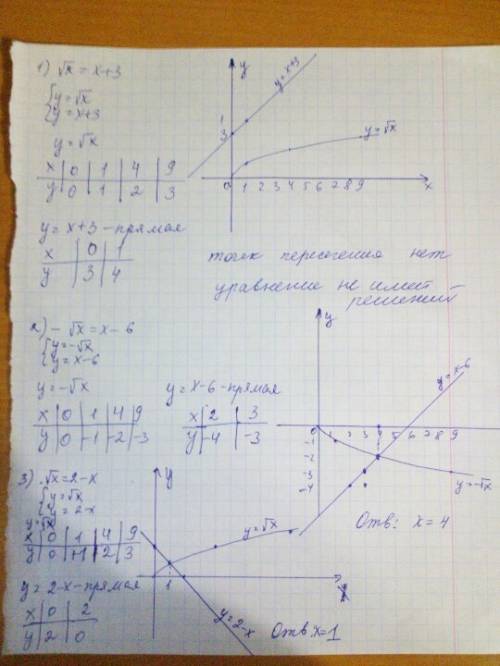 1) √x = x+3
{y=√x
{y=x+3
y=√x
x | 0 | 1 | 4 | 9
y | 0 | 1 | 2 | 3
y=x+3-прямая
x | 0 | 1
y | 3 | 4
y
y=x+3
3
y=√x
0 1 2 3 4 5 6 7 8 9 x
точек пересечения нет
уравнение не имеет
решений
2) -√x = x-6
{y=-√x
{y=x-6
y=-√x
x | 0 | 1 | 4 | 9
y | 0 | -1 | -2 | -3
y=x-6-прямая
x | 2 | 3
y | -4 | -3
y
y=x-6
1 2 3 4 5 6 7 8 9
-1
-2
-3
-4
y=-√x
Отв: x=4
3) √x=2-x
{y=√x
{y=2-x
y=√x
x | 0 | 1 | 4 | 9
y | 0 | 1 | 2 | 3
y=2-x-прямая
x | 0 | 2
y | 2 | 0
y
y=√x
1
x
y=2-x
Отв. x=1